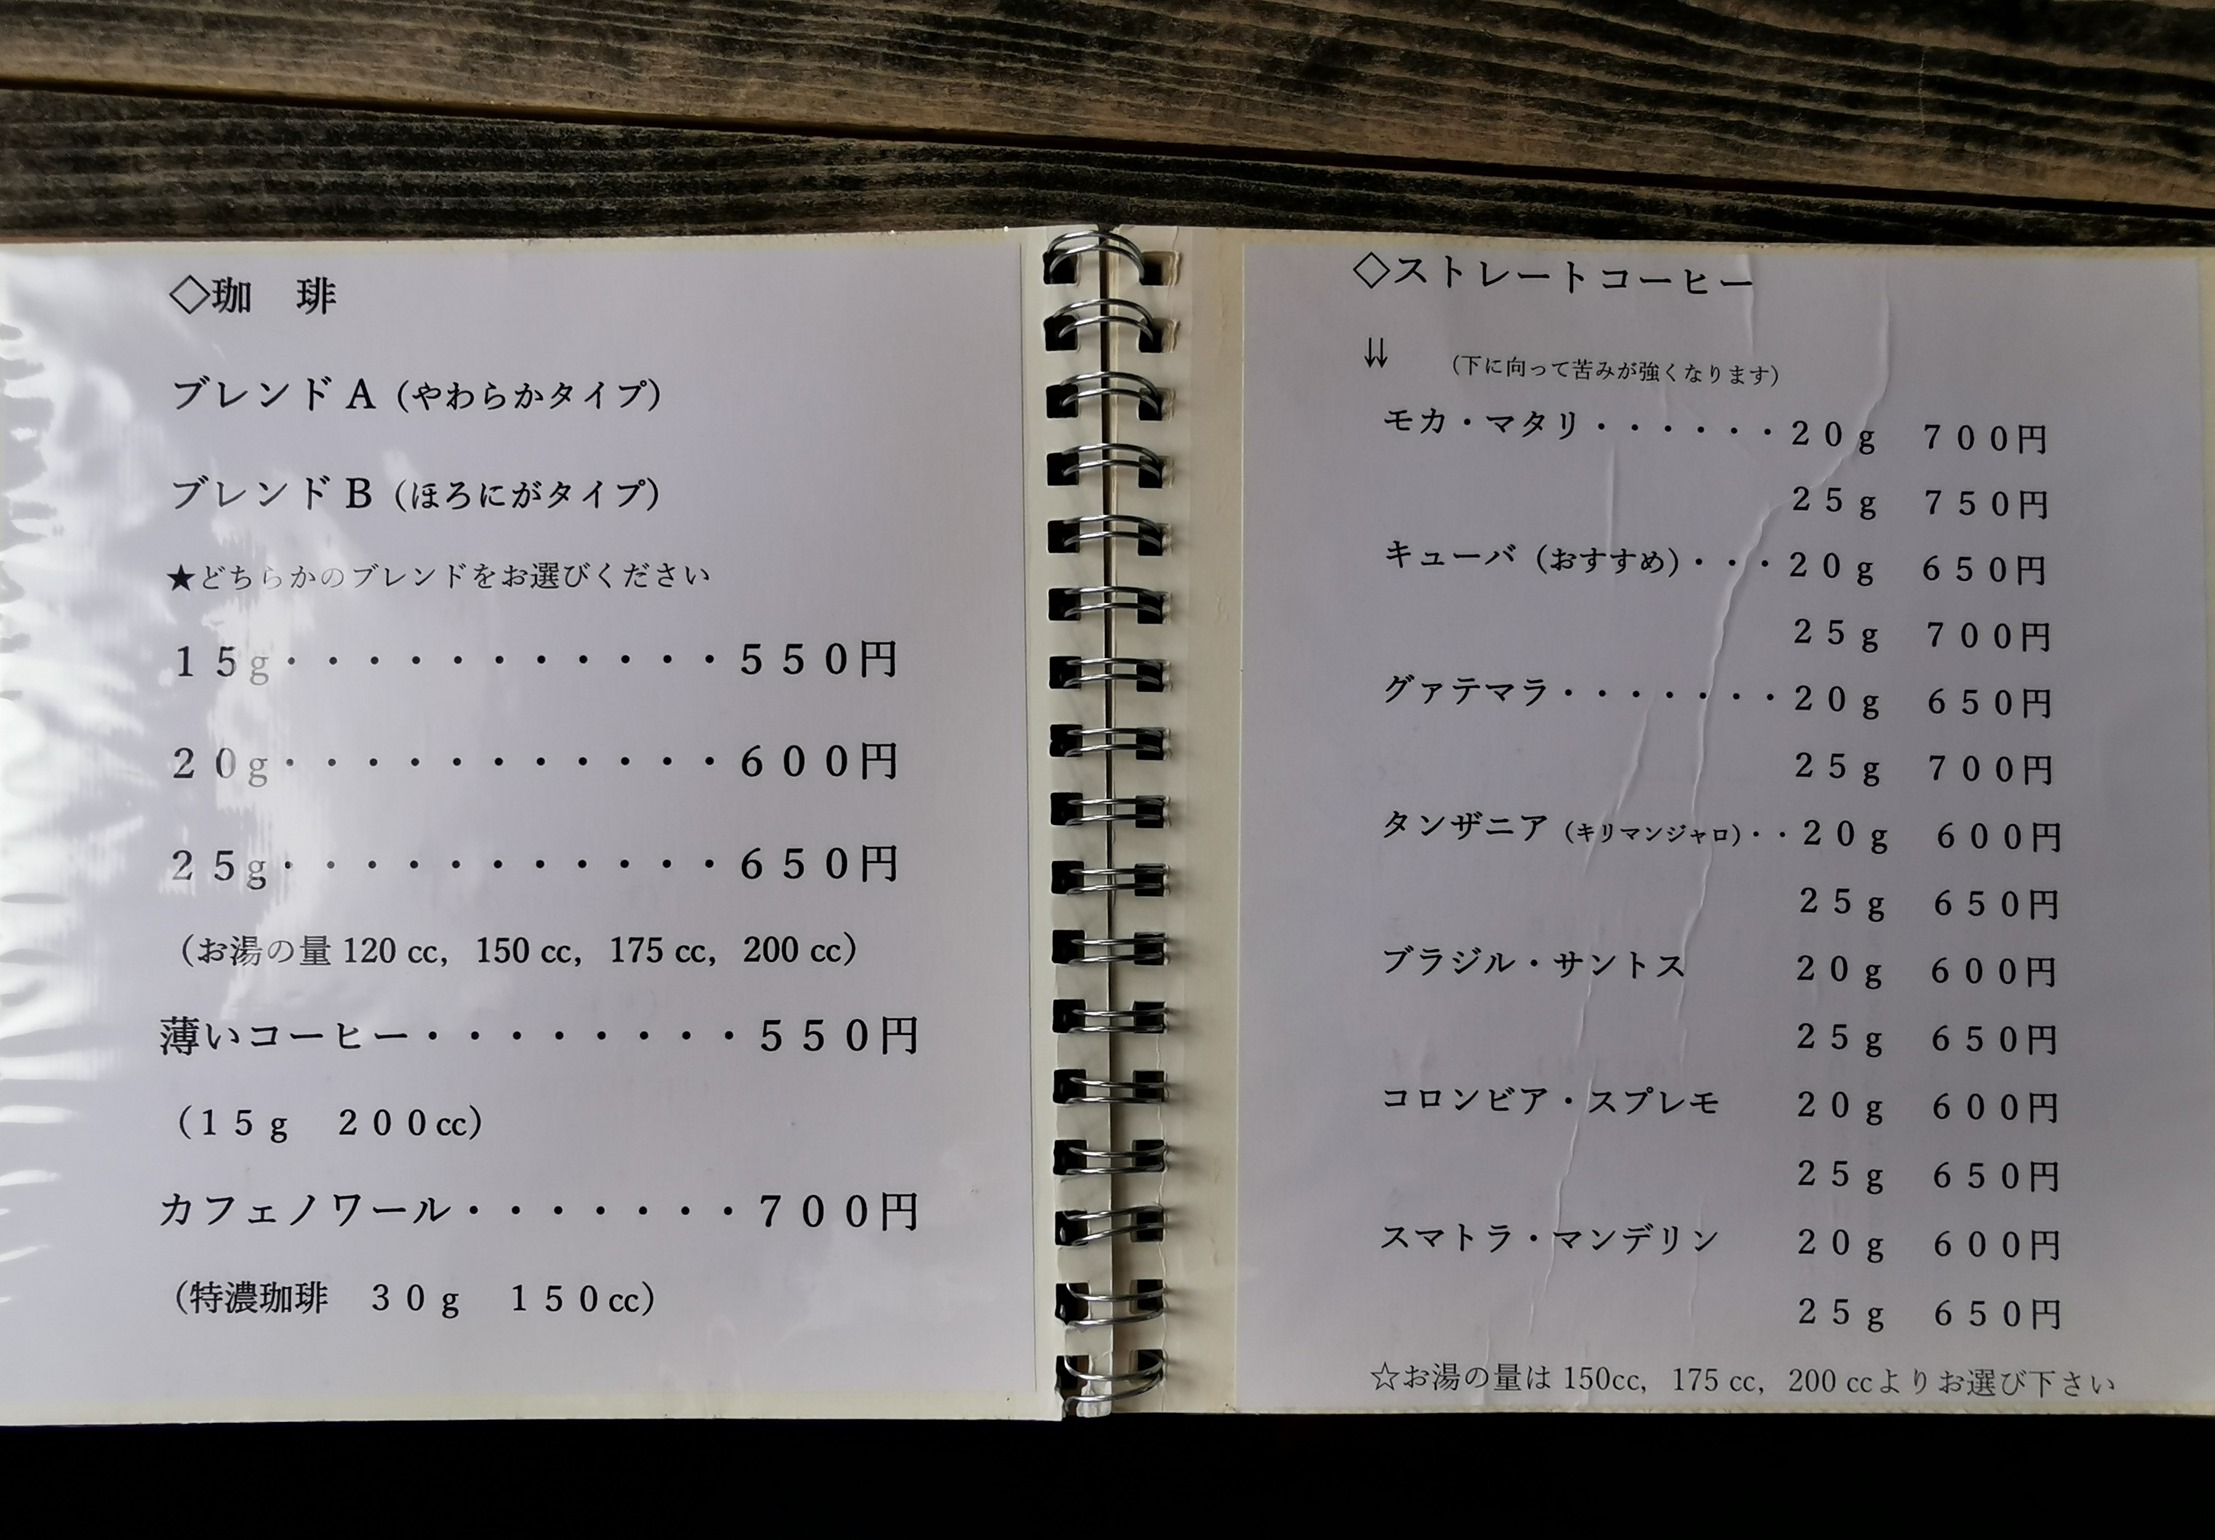 ◇珈　琲
ブレンドA（やわらかタイプ）
ブレンドB（ほろにがタイプ）
★どちらかのブレンドをお選びください
１５g・・・・・・・・・・・５５０円
２０g・・・・・・・・・・・６００円
２５g・・・・・・・・・・・６５０円
（お湯の量 120 cc，150 cc，175 cc，200 cc）
薄いコーヒー・・・・・・・・５５０円
（１５g　２００cc）
カフェノワール・・・・・・・７００円
（特濃珈琲　３０g　１５０cc）
◇ストレートコーヒー
↓↓　（下に向って苦みが強くなります）
モカ・マタリ・・・・・・２０g　７００円
２５g　７５０円
キューバ（おすすめ）・・・２０g　６５０円
２５g　７００円
グァテマラ・・・・・・・２０g　６５０円
２５g　７００円
タンザニア（キリマンジャロ）・・２０g　６００円
２５g　６５０円
ブラジル・サントス　２０g　６００円
２５g　６５０円
コロンビア・スプレモ　２０g　６００円
２５g　６５０円
スマトラ・マンデリン　２０g　６００円
２５g　６５０円
☆お湯の量は 150cc，175 cc，200 ccよりお選び下さい